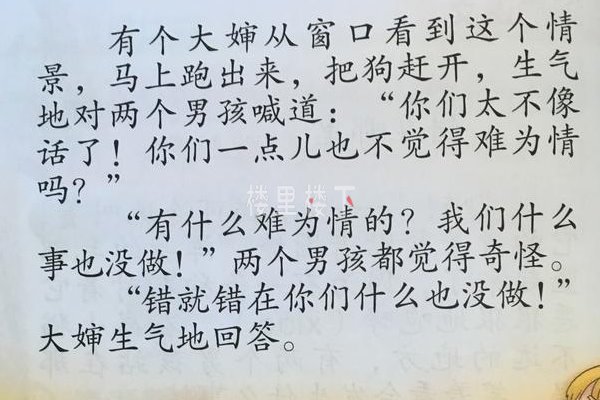 有个大婶从窗口看到这个情
景，马上跑出来，把狗赶开，生气
地对两个男孩喊道：“你们太不像
话了！你们一点儿也不觉得难为情
吗？”
楼里楼下
“有什么难为情的？我们什么
事也没做！”两个男孩都觉得奇怪。
“错就错在你们什么也没做！”
大婶生气地回答。